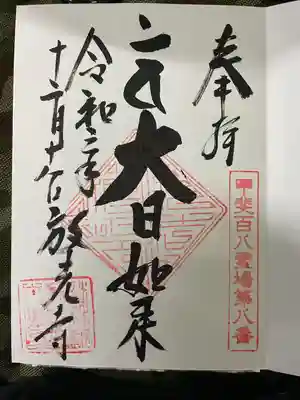 奉拝
甲斐百八霊場第八番
大日如来
令和二年
十二月 放光寺